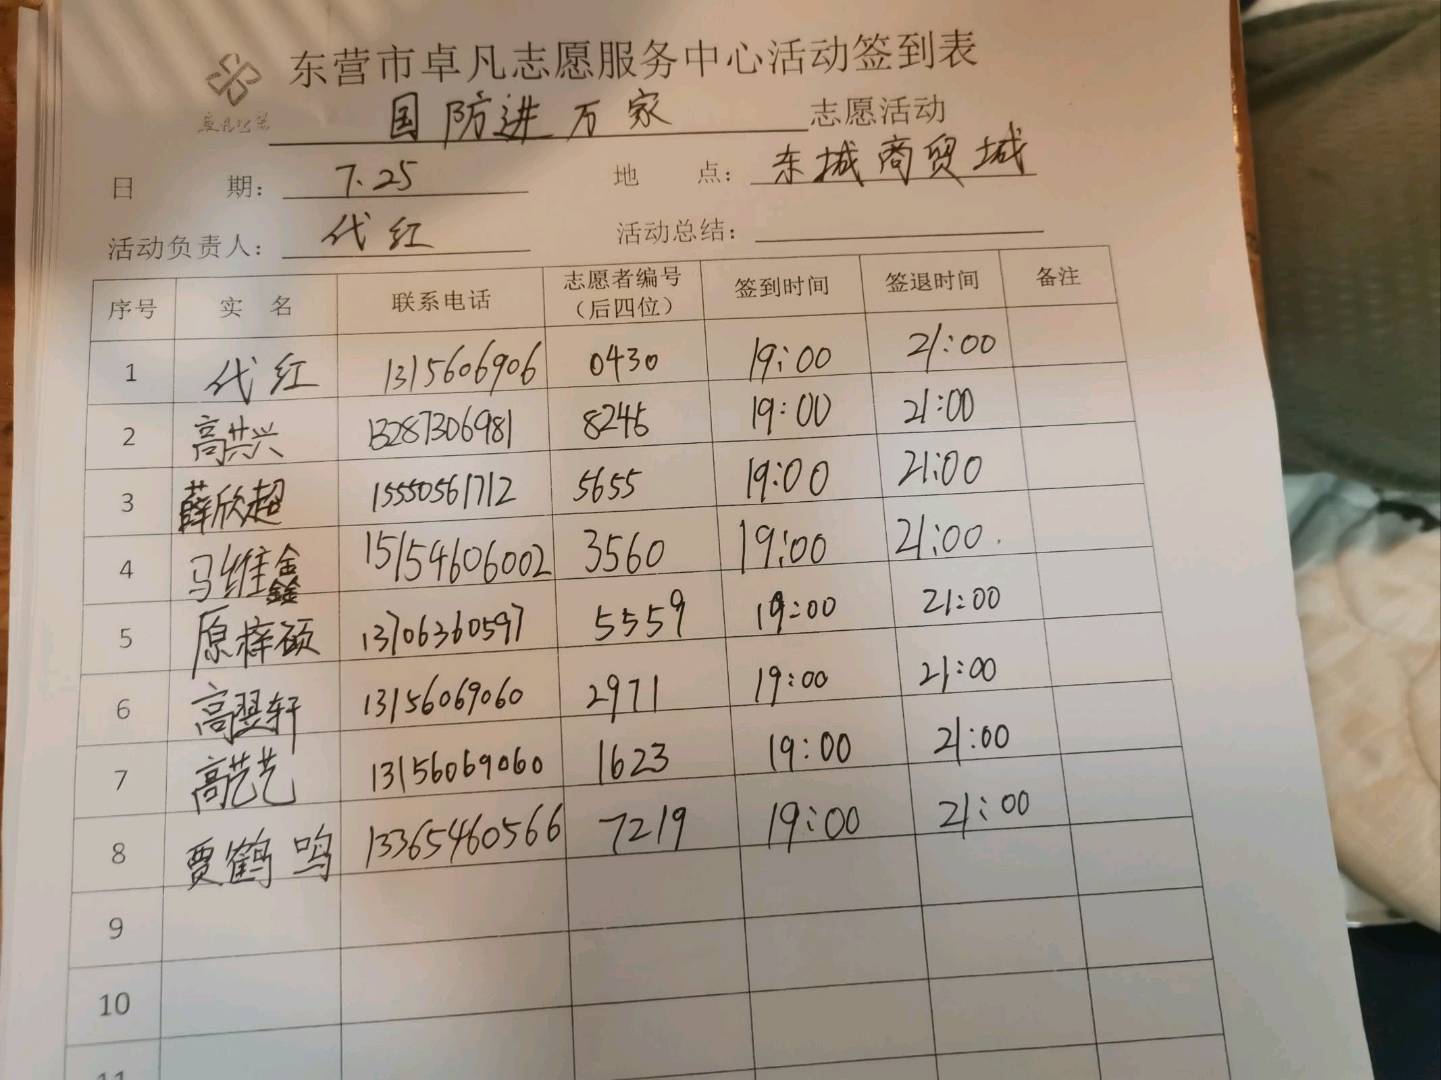 东营市卓凡志愿服务中心活动签到表
国防进万家 志愿活动
日 期: 7.25 地 点: 东城商贸城
活动负责人: 代红 活动总结:
序号 实 名 联系电话 志愿者编号(后四位) 签到时间 签退时间 备注
1 代红 1315606906 0430 19:00 21:00
2 高共兴 13287306981 8246 19:00 21:00
3 薛欣超 15550561712 5655 19:00 21:00
4 马维鑫 15154606002 3560 19:00 21:00.
5 原梓硕 13706360597 5559 19:00 21:00
6 高翌轩 13156069060 2971 19:00 21:00
7 高艺艺 13156069060 1623 19:00 21:00
8 贾鹤鸣 13365460566 7219 19:00 21:00
9
10
11